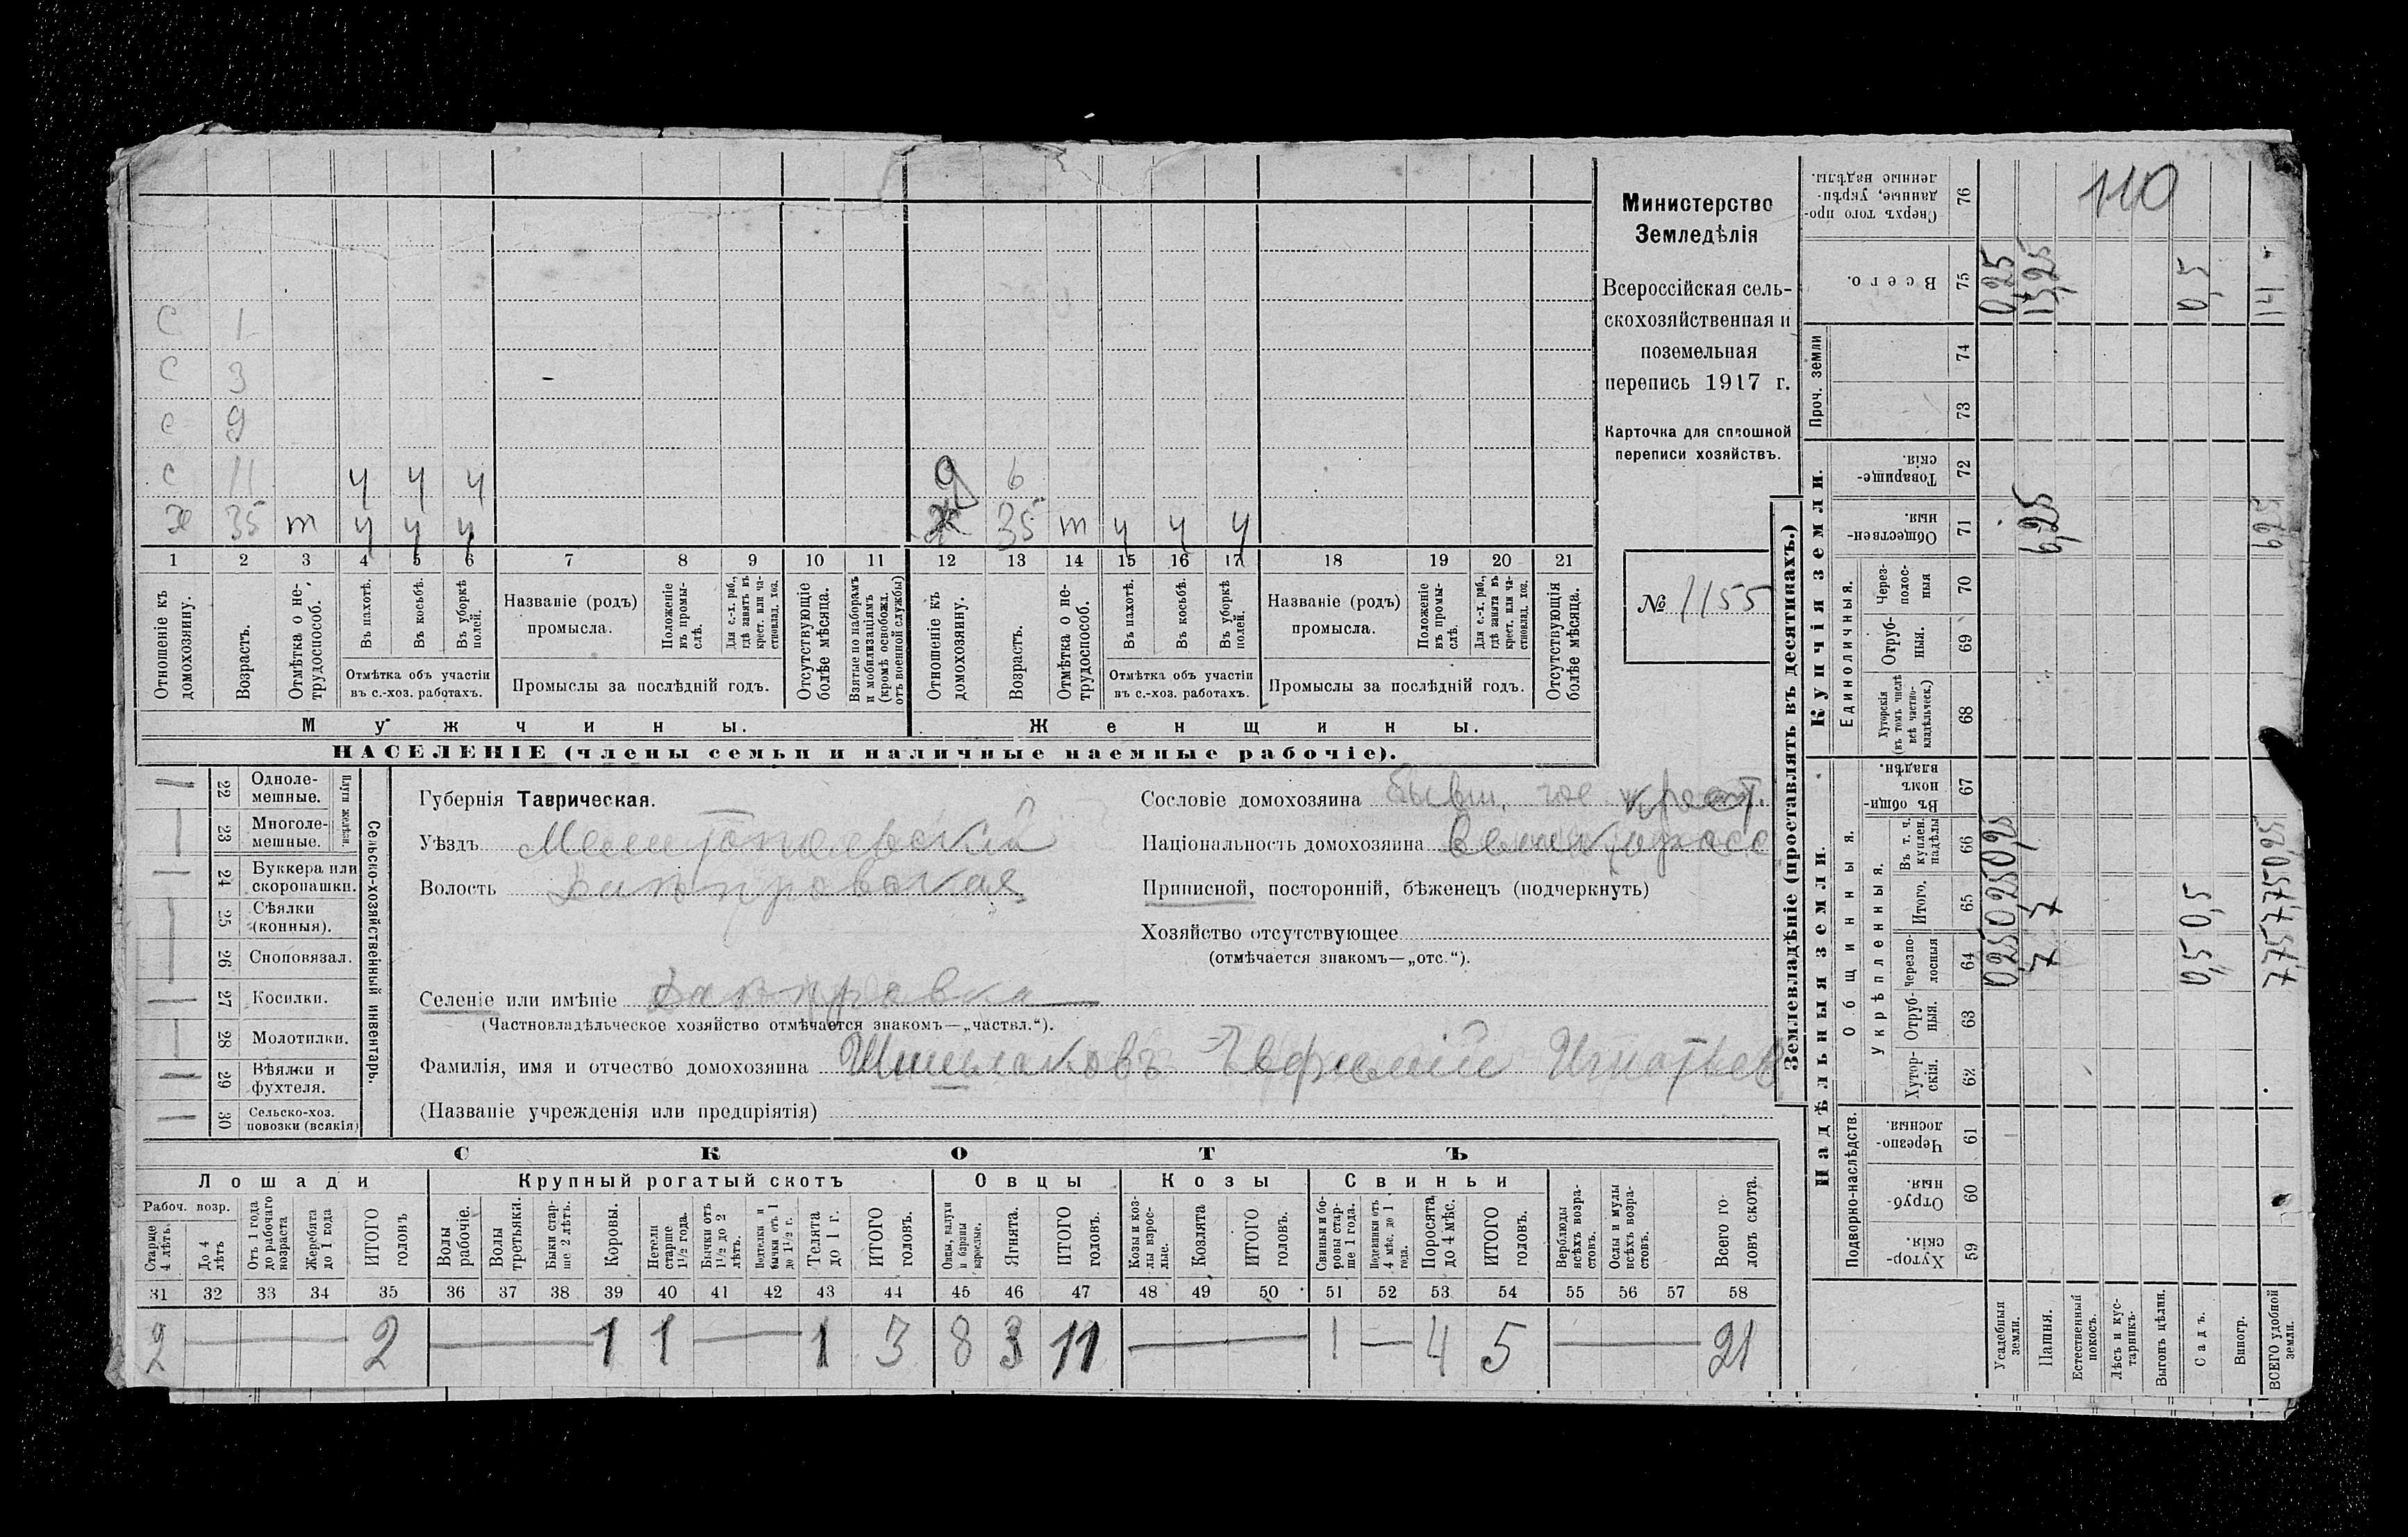 С 1
С 3
С 9
С 11 у у у 9 6
Х 35 т у у у Ж 35 т у у у
1 2 3 4 5 6 7 8 9 10 11 12 13 14 15 16 17 18 19 20 21
Отношеніе къ домохозяину.
Возрастъ.
Отмѣтка о нетрудоспособ.
Въ пахотѣ.
Въ косьбѣ.
Въ уборкѣ полей.
Отмѣтка объ участіи
въ с.-хоз. работахъ.
Названіе (родъ)
промысла.
Положеніе въ промыслѣ.
Для с.-х. раб., гдѣ занятъ въ крест. или частновлад. хоз.
Промыслы за послѣдній годъ.
Отсутствующіе болѣе мѣсяца.
Взятые по наборамъ и мобилизаціямъ (кромѣ освобожд. отъ военной службы)
Отношеніе къ домохозяину.
Возрастъ.
Отмѣтка о нетрудоспособ.
Въ пахотѣ.
Въ косьбѣ.
Въ уборкѣ полей.
Отмѣтка объ участіи
въ с.-хоз. работахъ.
Названіе (родъ)
промысла.
Положеніе въ промыслѣ.
Для с.-х. раб., гдѣ занята въ крест. или частновлад. хоз.
Промыслы за послѣдній годъ.
Отсутствующія болѣе мѣсяца.
Мужчины.
Женщины.
НАСЕЛЕНІЕ (члены семьи и наличные наемные рабочіе).
Министерство
Земледѣлія
Всероссійская сель-
скохозяйственная и
поземельная
перепись 1917 г.
Карточка для сплошной
переписи хозяйствъ.
№ 1155
22 Одноле-
мешные.
23 Многоле-
мешные.
Плуги желѣзн.
24 Буккера или
скоропашки.
25 Сѣялки
(конныя).
26 Сноповязал.
27 Косилки.
28 Молотилки.
29 Вѣялки и
фухтеля.
30 Сельско-хоз.
повозки (всякія)
Сельско-хозяйственный инвентарь.
Губернія Таврическая.
Уѣздъ Мелитопольскій
Волость
Селеніе или имѣніе
(Частновладѣльческое хозяйство отмѣчается знакомъ—„частвл.“).
Фамилія, имя и отчество домохозяина Ефимій Игнатьев
(Названіе учрежденія или предпріятія)
Сословіе домохозяина бывш. гос. крест.
Національность домохозяина великоросс
Приписной, посторонній, бѣженецъ (подчеркнуть)
Хозяйство отсутствующее
(отмѣчается знакомъ—„отс.“).
СКОТЪ
Лошади Крупный рогатый скотъ Овцы Козы Свиньи
Рабоч. возр.
Старше 4 лѣтъ.
До 4 лѣтъ
Отъ 1 года до рабочаго возраста
Жеребята до 1 года
ИТОГО головъ
Волы рабочіе.
Волы третьяки.
Быки старше 2 лѣтъ.
Коровы.
Нетели старше 1½ года.
Бычки отъ 1½ до 2 лѣтъ.
Подтелки и бычки отъ 1 до 1½ г.
Телята до 1 г.
ИТОГО головъ.
Овцы, валухи и бараны взрослые.
Ягнята.
ИТОГО головъ.
Козы и козлы взрослые.
Козлята
ИТОГО головъ.
Свиньи и боровы старше 1 года.
Подсвинки отъ 4 мѣс. до 1 года.
Поросята до 4 мѣс.
ИТОГО головъ.
Верблюды всѣхъ возрастовъ.
Ослы и мулы всѣхъ возрастовъ.
Всего головъ скота.
31 32 33 34 35 36 37 38 39 40 41 42 43 44 45 46 47 48 49 50 51 52 53 54 55 56 57 58
2 2 1 1 1 3 8 3 11 1 4 5 21
Землевладѣніе (проставлять въ десятинахъ.)
Надѣльныя земли.
Купчія земли.
Проч. земли
Подворно-наслѣдств.
Общинныя.
Укрѣпленныя.
Единоличныя.
59 Хуторскія.
60 Отрубныя.
61 Черезполосныя.
62 Хуторскія.
63 Отрубныя.
64 Черезполосныя
65 Итого.
66 Въ т. ч. куплен. надѣлы
67 Въ общинномъ владѣн.
68 Хуторскія (въ томъ числѣ всѣ частновладѣльческ.)
69 Отрубныя.
70 Черезполосныя
71 Общественныя.
72 Товарищескія.
73
74
75 Всего.
76 Сверхъ того проданные, укрѣпленные надѣлы.
110
Усадебныя земли. 025 025 025 025
Пашня. 7 7 6,25 13,25
Естественный покосъ.
Лѣсъ и кустарникъ.
Выгонъ цѣлин.
Садъ. 0,5 0,5 0,5
Виногр.
ВСЕГО удобной земли. 7,75 7,75 0,25 625 141